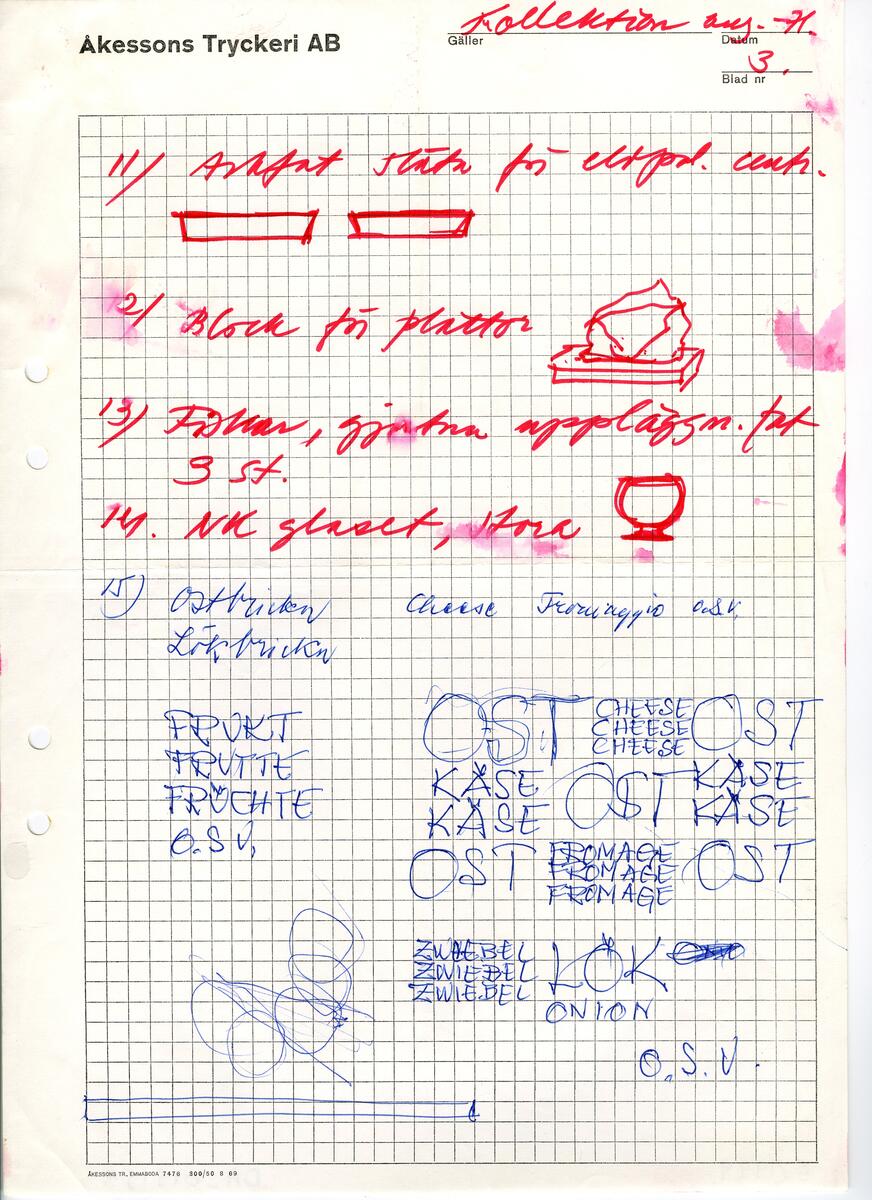 Åkessons Tryckeri AB
Kollektion aug. -71.
Gäller
Datum
3.
Blad nr
11/ Askfat släta för eldpol. centr.
12/ Block för plattor
13/ Fiskar, gjutna uppläggn. fat
3 st.
14. NK glaset, stora
15) Ostbrickn Cheese Fromaggio o.s.v.
Lökbrickn
FRUKT
FRUTTE
FRÜCHTE
O.S.V.
OST CHEESE OST
CHEESE
CHEESE
KÄSE OST KÄSE
KÄSE KÄSE
OST FROMAGE OST
FROMAGE
FROMAGE
ZWIEBEL LÖK
ZWIEBEL
ZWIEBEL
ONION
O.S.V.
ÅKESSONS TR., EMMABODA 7476 300/50 8 69